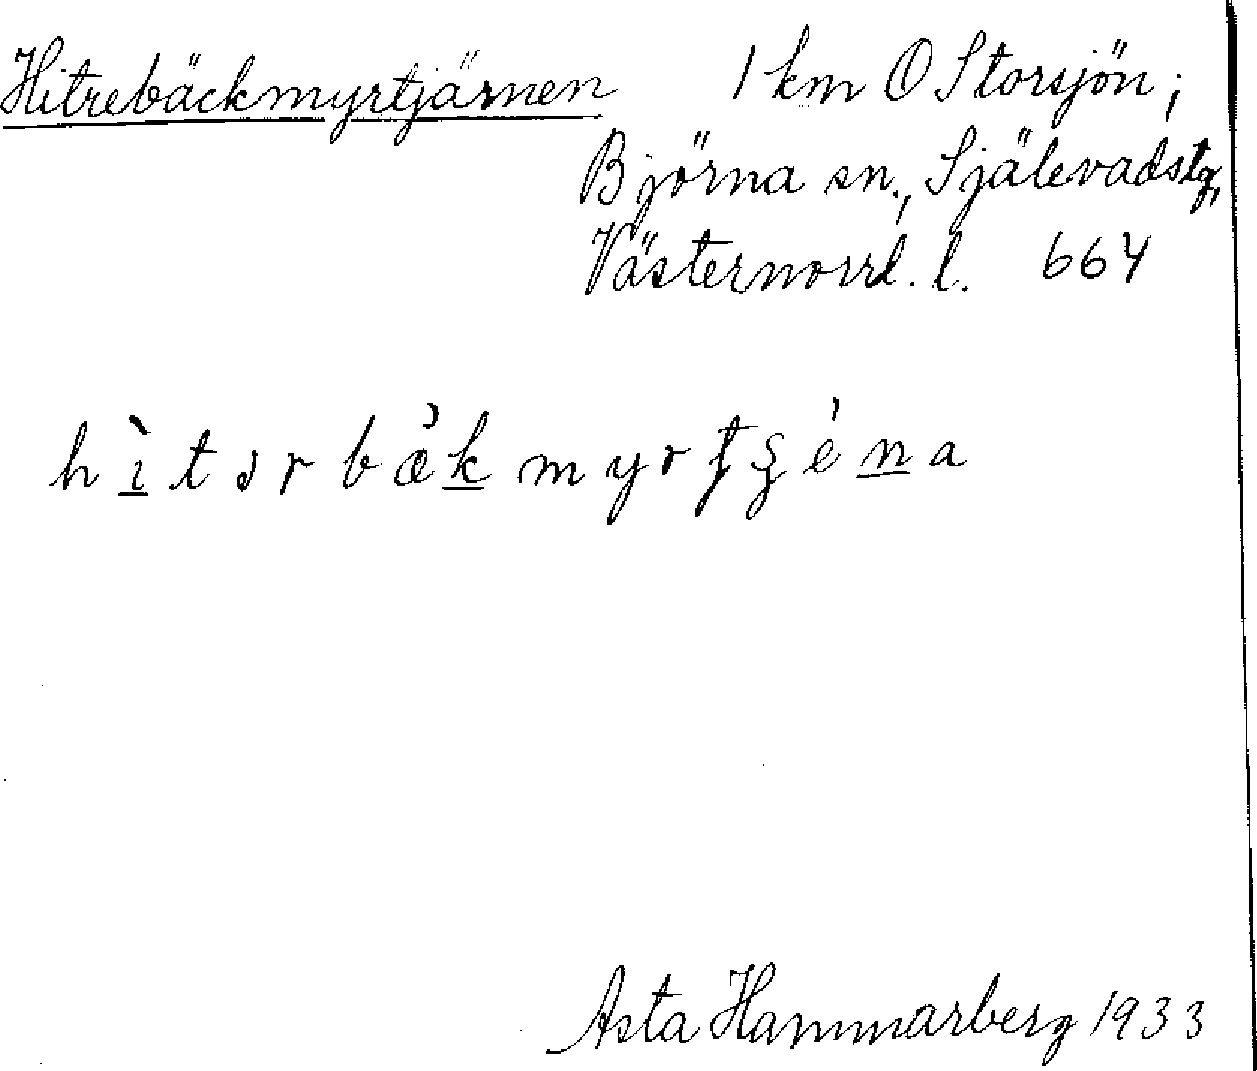 Hitrebäckmyrtjärnen 1 km O Storsjön;
Björna sn., Själevadstg,
Västernorrl. l. 664
Asta Hammarberg 1933